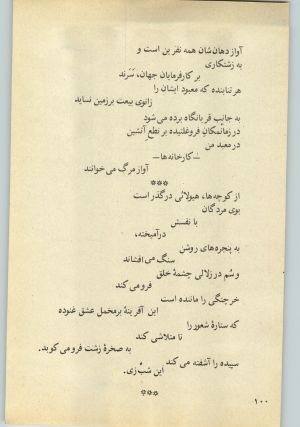 آواز دهان‌شان همه نفرین است و
به زشتکاری
بر کارفرمایان جهان، سَرَند
هر تنابنده که معبود ایشان را
زانوی بیعت بر زمین نساید
به جانبِ قربانگاه برده می‌شود
در زمانمکانِ فروغلتیده بر نطعِ آتشین
در معبد من
ـ کارخانه‌ها ـ
آواز مرگ می‌خوانند
***
از کوچه‌ها، هیولائی در گذر است
بوی مردگان
با نفسش
درآمیخته،
به پنجره‌های روشن
سنگ می‌افشاند
و سُم در زلالیِ چشمهٔ خلق
فرو می‌کند
خرچنگی را مانده است
این آفرینهٔ بر مخمل عشق غنوده
که ستارهٔ شعور را
تا متلاشی کند
به صخرهٔ زشت فرو می‌کوبد.
سپیده را آشفته می‌کند
این شب‌زی.
***
۱۰۰